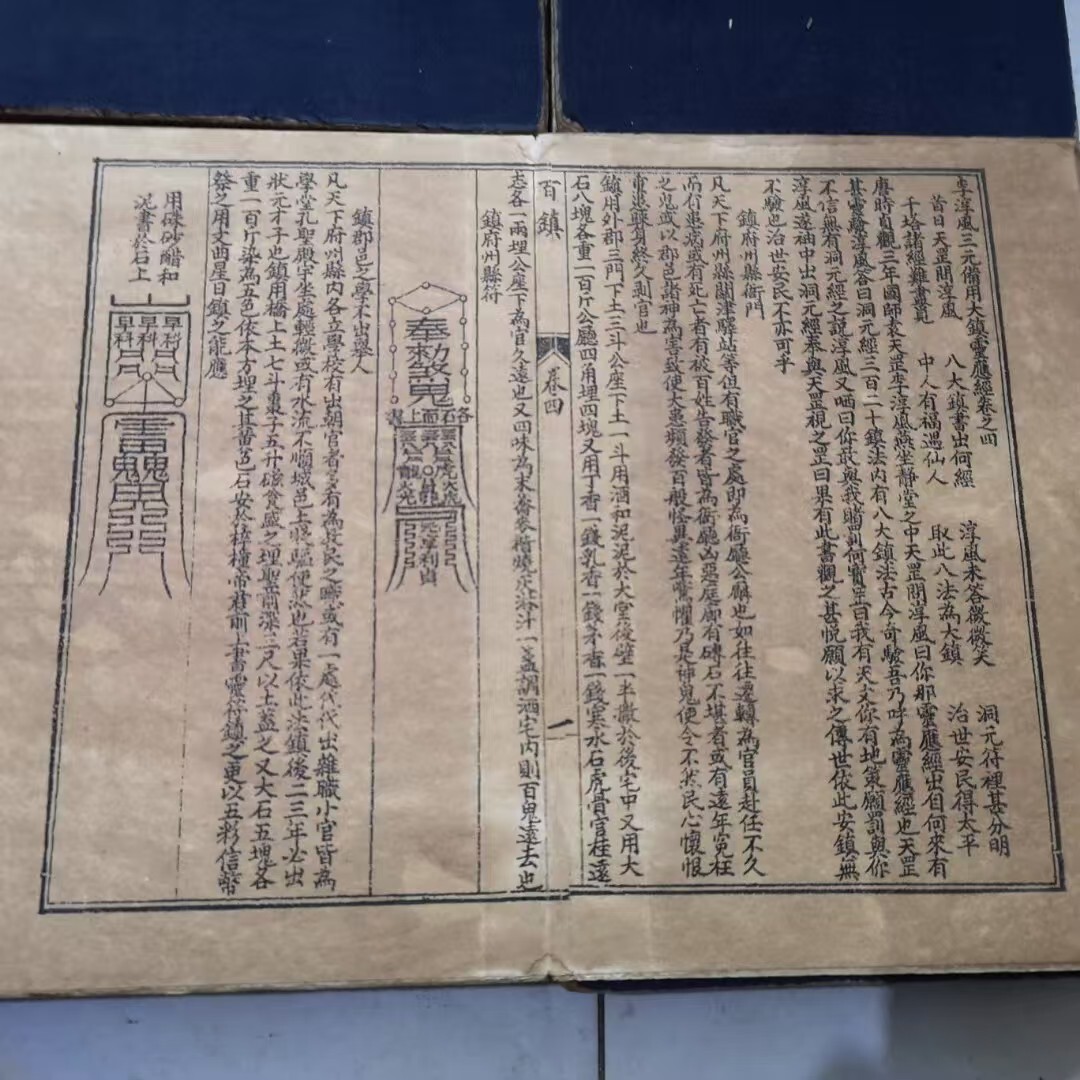 李淳風三元備用大鎮靈應經卷之四
昔日天罡問淳風 八大鎮書出何經 淳風未答微微笑 洞元符裡甚分明
千塔諸經難盡覓 中人有福遇仙人 取此八法為大鎮 治世安民得太平
唐時貞觀三年國師袁天罡李淳風燕坐靜堂之中天罡問淳風曰你那靈應經出自何來有
甚靈驗淳風答曰洞元經三百二十鎮法內有八大鎮法古今奇驗吾乃呼為靈應經也天罡
不信無有洞元經之說淳風又哂曰你敢與我賭罰何寶罡曰我有天文你有地策願罰與你
淳風遂袖中出洞元經奉與天罡視之罡曰果有此書觀之甚悅願以求之傳世依此安鎮無
不驗也治世安民不亦可乎
鎮府州縣衙門
凡天下府州縣關津驛站等但有職官之處即為衙廳公廟也如往往遷轉為官員赴任不久
而有患病或有死亡者有被百姓告發者皆為衙廳凶惡庭廊有磚石不堪者或有遠年冤枉
之鬼或以郡邑諸神為害或使大患頻發百般怪異遠年驚懼乃是神鬼使令不然民心懷恨
重患賺身終久剥官也
鎮用外郡三門下土三斗公座下土一斗用酒和泥泥於大堂後壁一半撒於後宅中又用大
石八塊各重一百斤公廳四角埋四塊又用丁香一錢乳香一錢芥香一錢寒水石虎骨官桂遠
志各一兩埋公座下為官久遠也又四味為末養
燒灰淋汁一盞調洒宅內則百鬼遠去也
百鎮
卷四
一
鎮府州縣符
奉勅煞鬼
各石面上書
鎮郡邑之學不出舉人
凡天下府州縣內各立學校有出朝官者多有為教民之職或有一處代代出雜職小官皆為
學堂孔聖殿宇坐處輕微或有水流不順城邑上
便然也若果依此法鎮後二三年必出
狀元才子也鎮用橋上土七斗棗子五升磁食盛之埋聖前深三尺以土蓋之又大石五塊各
重一百斤染為五色依本方埋之其黃色石安於梓橦帝君前上書靈符鎮之更以五彩信幣
祭之用文曲星日鎮之能應
用硃砂醋和
泥書於石上